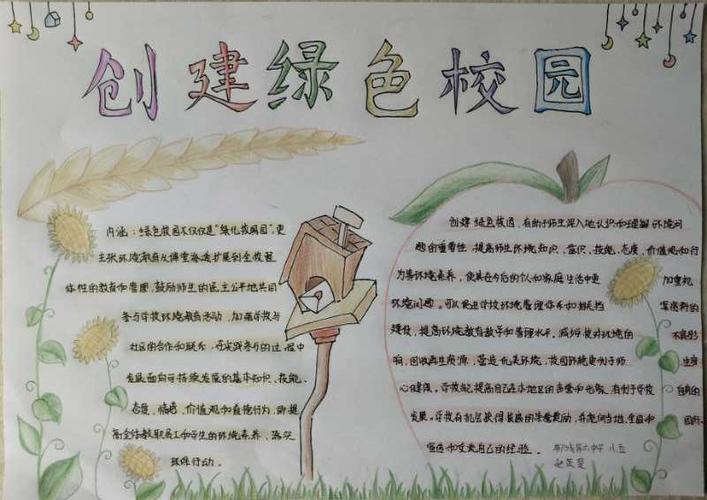 创建绿色校园
内涵：绿色校园不仅仅是"绿化校园"，更
主张环境教育从课堂渗透扩展到全校整
体性的教育和管理，鼓励师生的民主公平地共同
参与学校环境教育活动，加强学校与
社区的合作和联系，在实践参与的过程中
发展面向可持续发展的基本知识、技能、
态度、情感、价值观和道德行为，即提
高全体教职员工和学生的环境素养，落实
环保行动。
创建绿色校园，有助于师生深入地认识和理解环境问
题的重要性，提高师生环境知识、意识、技能、态度、价值观和行
为等环境素养，使其在今后的个人和家庭生活中更加重视
环境问题。可以促进学校环境管理体系和制度
建设，提高环境教育教学和管理水平。减少校对环境的不良影
响，回收再生资源，营造优美环境，校园环境更利于师生身
心健康。学校能提高自己在本地区的声誉和地位，有利于学校自身的
发展。学校有机会获得校际的荣誉奖励，并走向当地、全国和国际，
宣传和交流自己的经验。